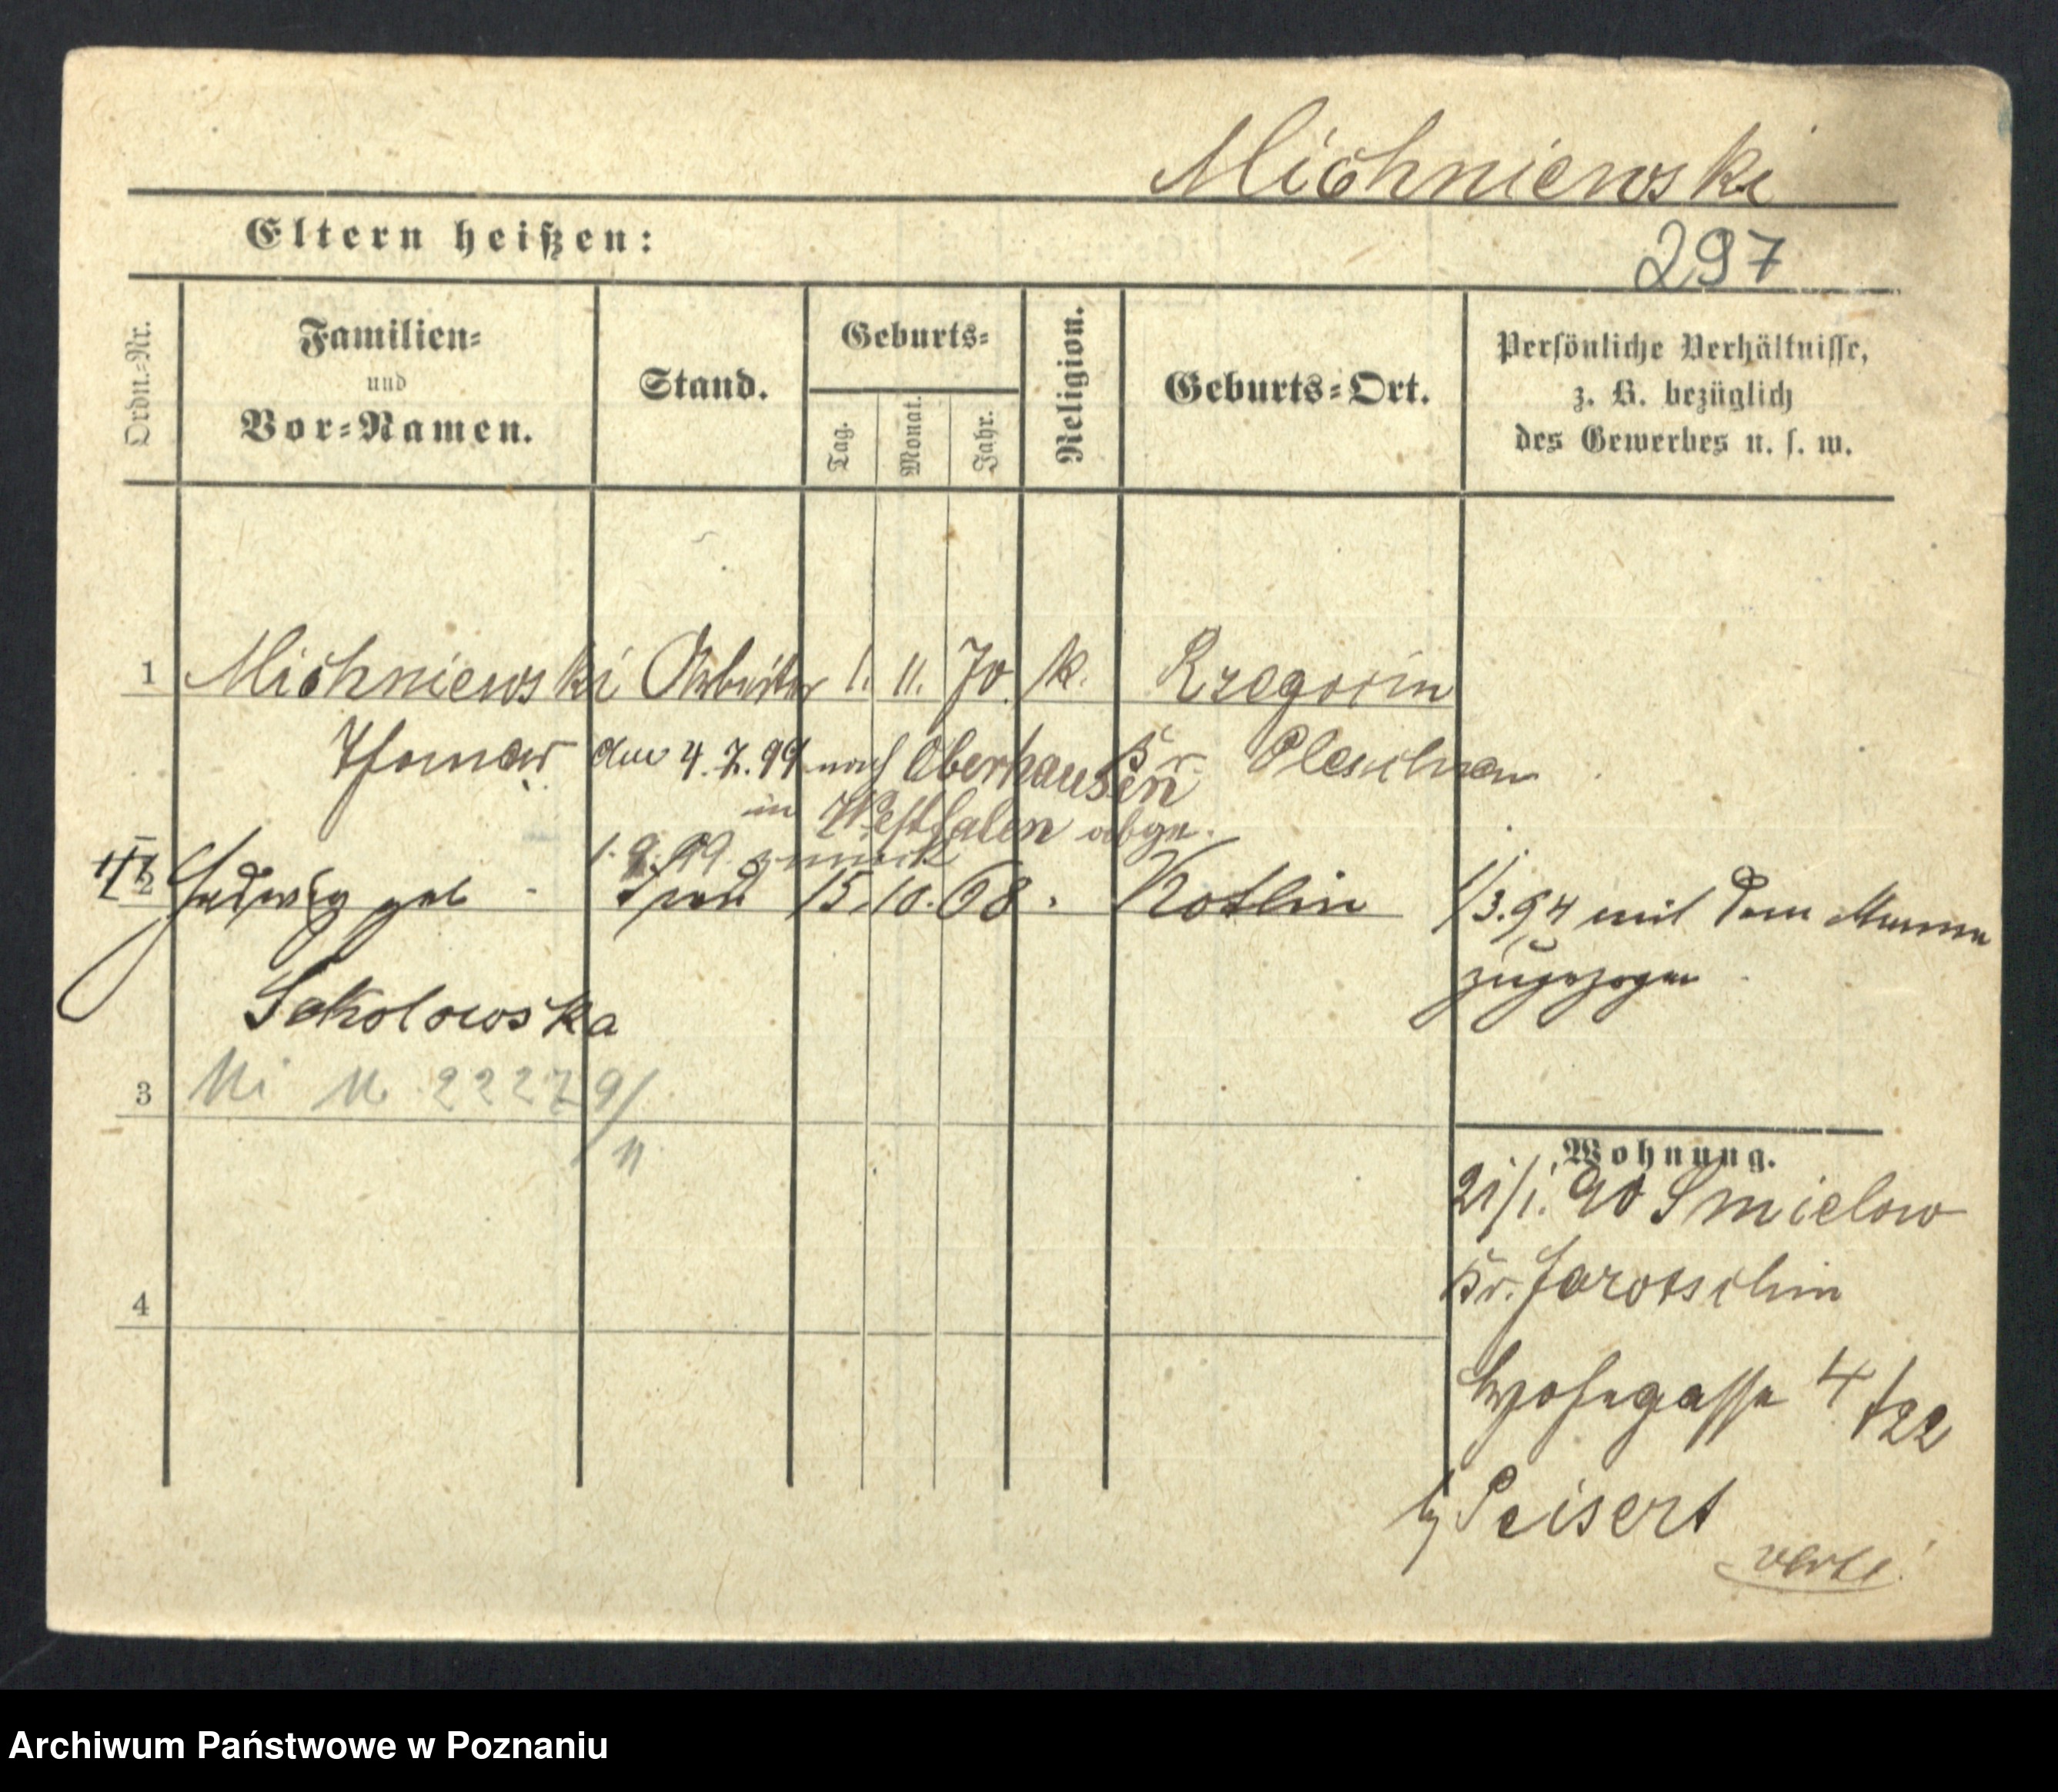 Michniewski
Eltern heißen:
297
Ordn.-Nr.
Familien-
und
Vor-Namen.
Stand.
Geburts-
Tag.
Monat.
Jahr.
Religion.
Geburts-Ort.
Persönliche Verhältnisse,
z. B. bezüglich
des Gewerbes u. s. w.
1 Michniewski Arbeiter 1. 11. 70. k. Rzegocin
Thomas Kr. Pleschen
am 4.7.99 nach Oberhausen
in Westfalen abge.
1.9.99 zurück
2 Hedwig geb Frau 15. 10. 68. Kotlin
Sokolowska
1/3.94 mit dem Manne
zugezogen
3 Mi N 22279/
11
Wohnung.
21/1. 90 Smielow
Kr. Jarotschin
4
4/22
by Peisert
verte!
Archiwum Państwowe w Poznaniu